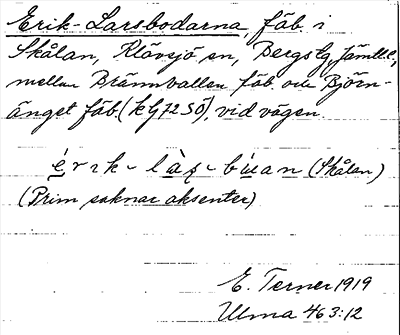 Erik-Larsbodarna, fäb. i
Skålan, Klövsjö sn, Bergs tg, Jämtl. l.,
mellan Brännvallen fäb. och Björn-
änget fäb. (kbg 72 SÖ), vid vägen.
é r ı k - l à ʂ - b ùan (Skålan)
(Prim saknar aksenter)
E. Terner 1919
Ulma 463:12